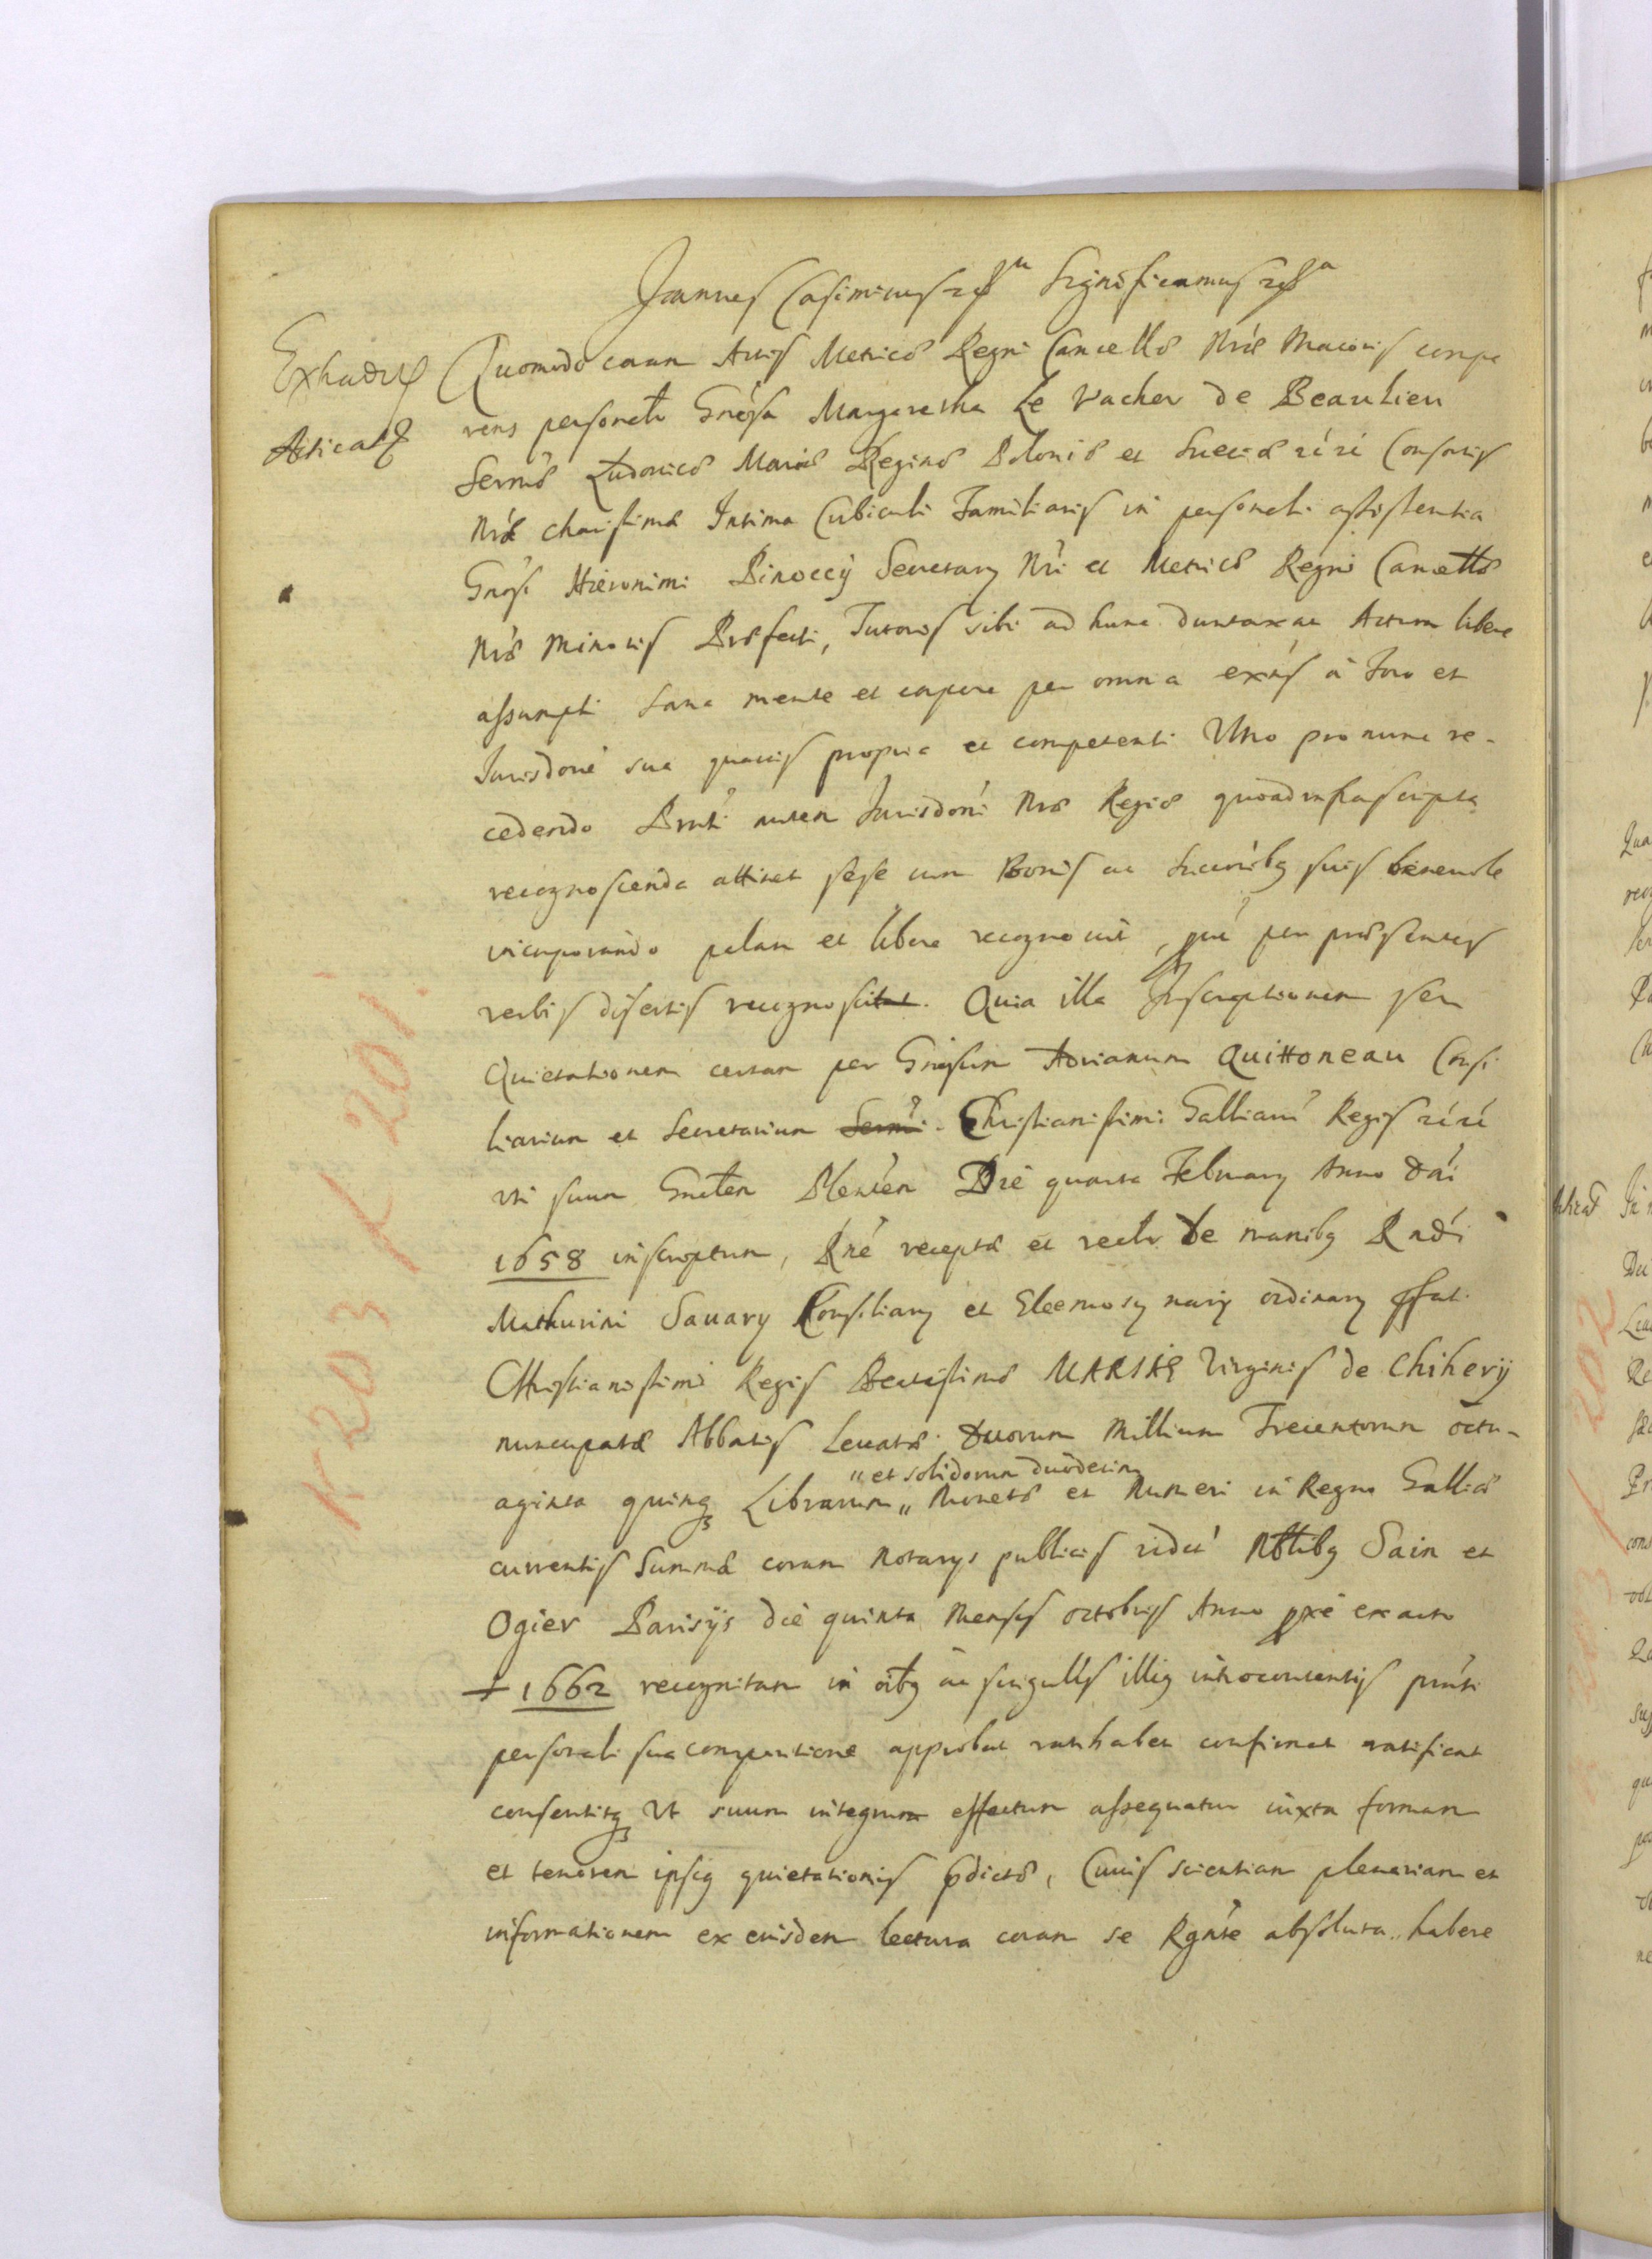 Joannes Casimirus etc Significamus etc
Extraditae
Atticat
Quomodo coram Actis Metricae Regni Cancellae Nrae Maioris compa
rens personalr Gnosa Margaretha Le Vacher de Beaulieu
Sermae Ludovicae Mariae Reginae Poloniae et Sueciae etc etc Consortis
Nrae charissimae Intima Cubiculi Familiaris in personali assistentia
Gnosi Hieronimi Pinoccÿ Secretarÿ Nri et Metricae Regni Cancellae
Nrae Minoris Praefecti, Tutoris sibi ad hunc duntaxat Actum libere
assumpti Sana mente et corpore per omnia exns à Foro et
Jurisdone sua quavis propria et competenti Viro pro nunc re-
cedendo Prnti autem Jurisdoni Nrae Regiae quoad infrascripta
recognoscenda attinet sese cum Bonis ac Succribg suis benevole
incorporando palam et libere recognovit, que per praesentes
verbis disertis recognoscit. Quia illa Inscriptionem seu
Quietationem certam per Gnosum Adrianum Quittoneau Consi
liarium et Secretarium Sermi Christianissimi Galliarum Regis etc etc
uti suum Gnalem Plenten Die quarta Februarÿ Anno Dni
1658 inscriptum, Rne receptae et recte de manibg Rndi
Mathurini Savary Consiliarÿ et Eleemosynarÿ ordinarÿ effat.
Christianissimi Regis Beatissimae MARIAE Virginis de Chiherÿ
nuncupatae Abbatis Levatae Duorum Millium Trecentorum octu-
"et solidorum duodecim
aginta quinq Librarum " Monetae et Numeri in Regno Galliae
currentis Summae coram Notarÿs publicis videt Nbilibg Sain et
Ogier Parisÿs die quinta Mensis octobris Anno pxe exacto
+ 1662 recognitam in oibg ac singulis illig introcontentis prnti
personali sua comparitione approbat ratihabet confirmat ratificat
consentitq Ut suum integrum effectum assequatur iuxta formam
et tenorem ipsig quietationis pdictae, Cuius scientiam plenariam et
informationem ex eiusdem lectura coram se Rgnte absoluta habere
K 203 / 201.